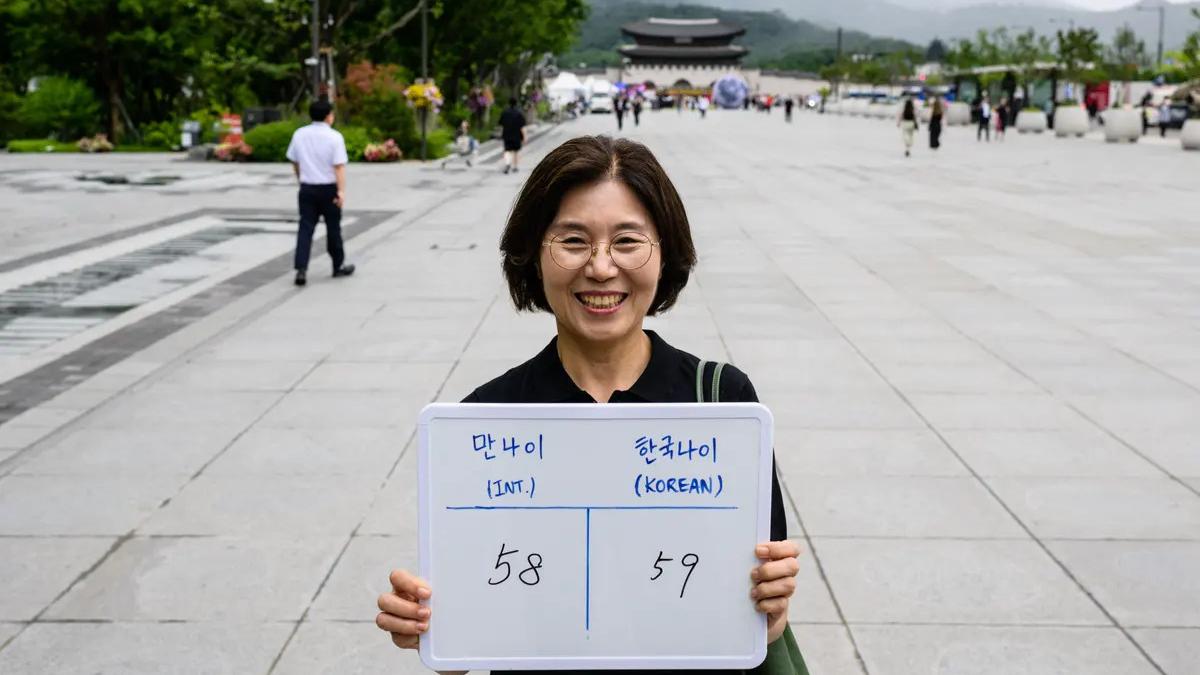 만나이 한국나이
(INT.) (KOREAN)
58 59